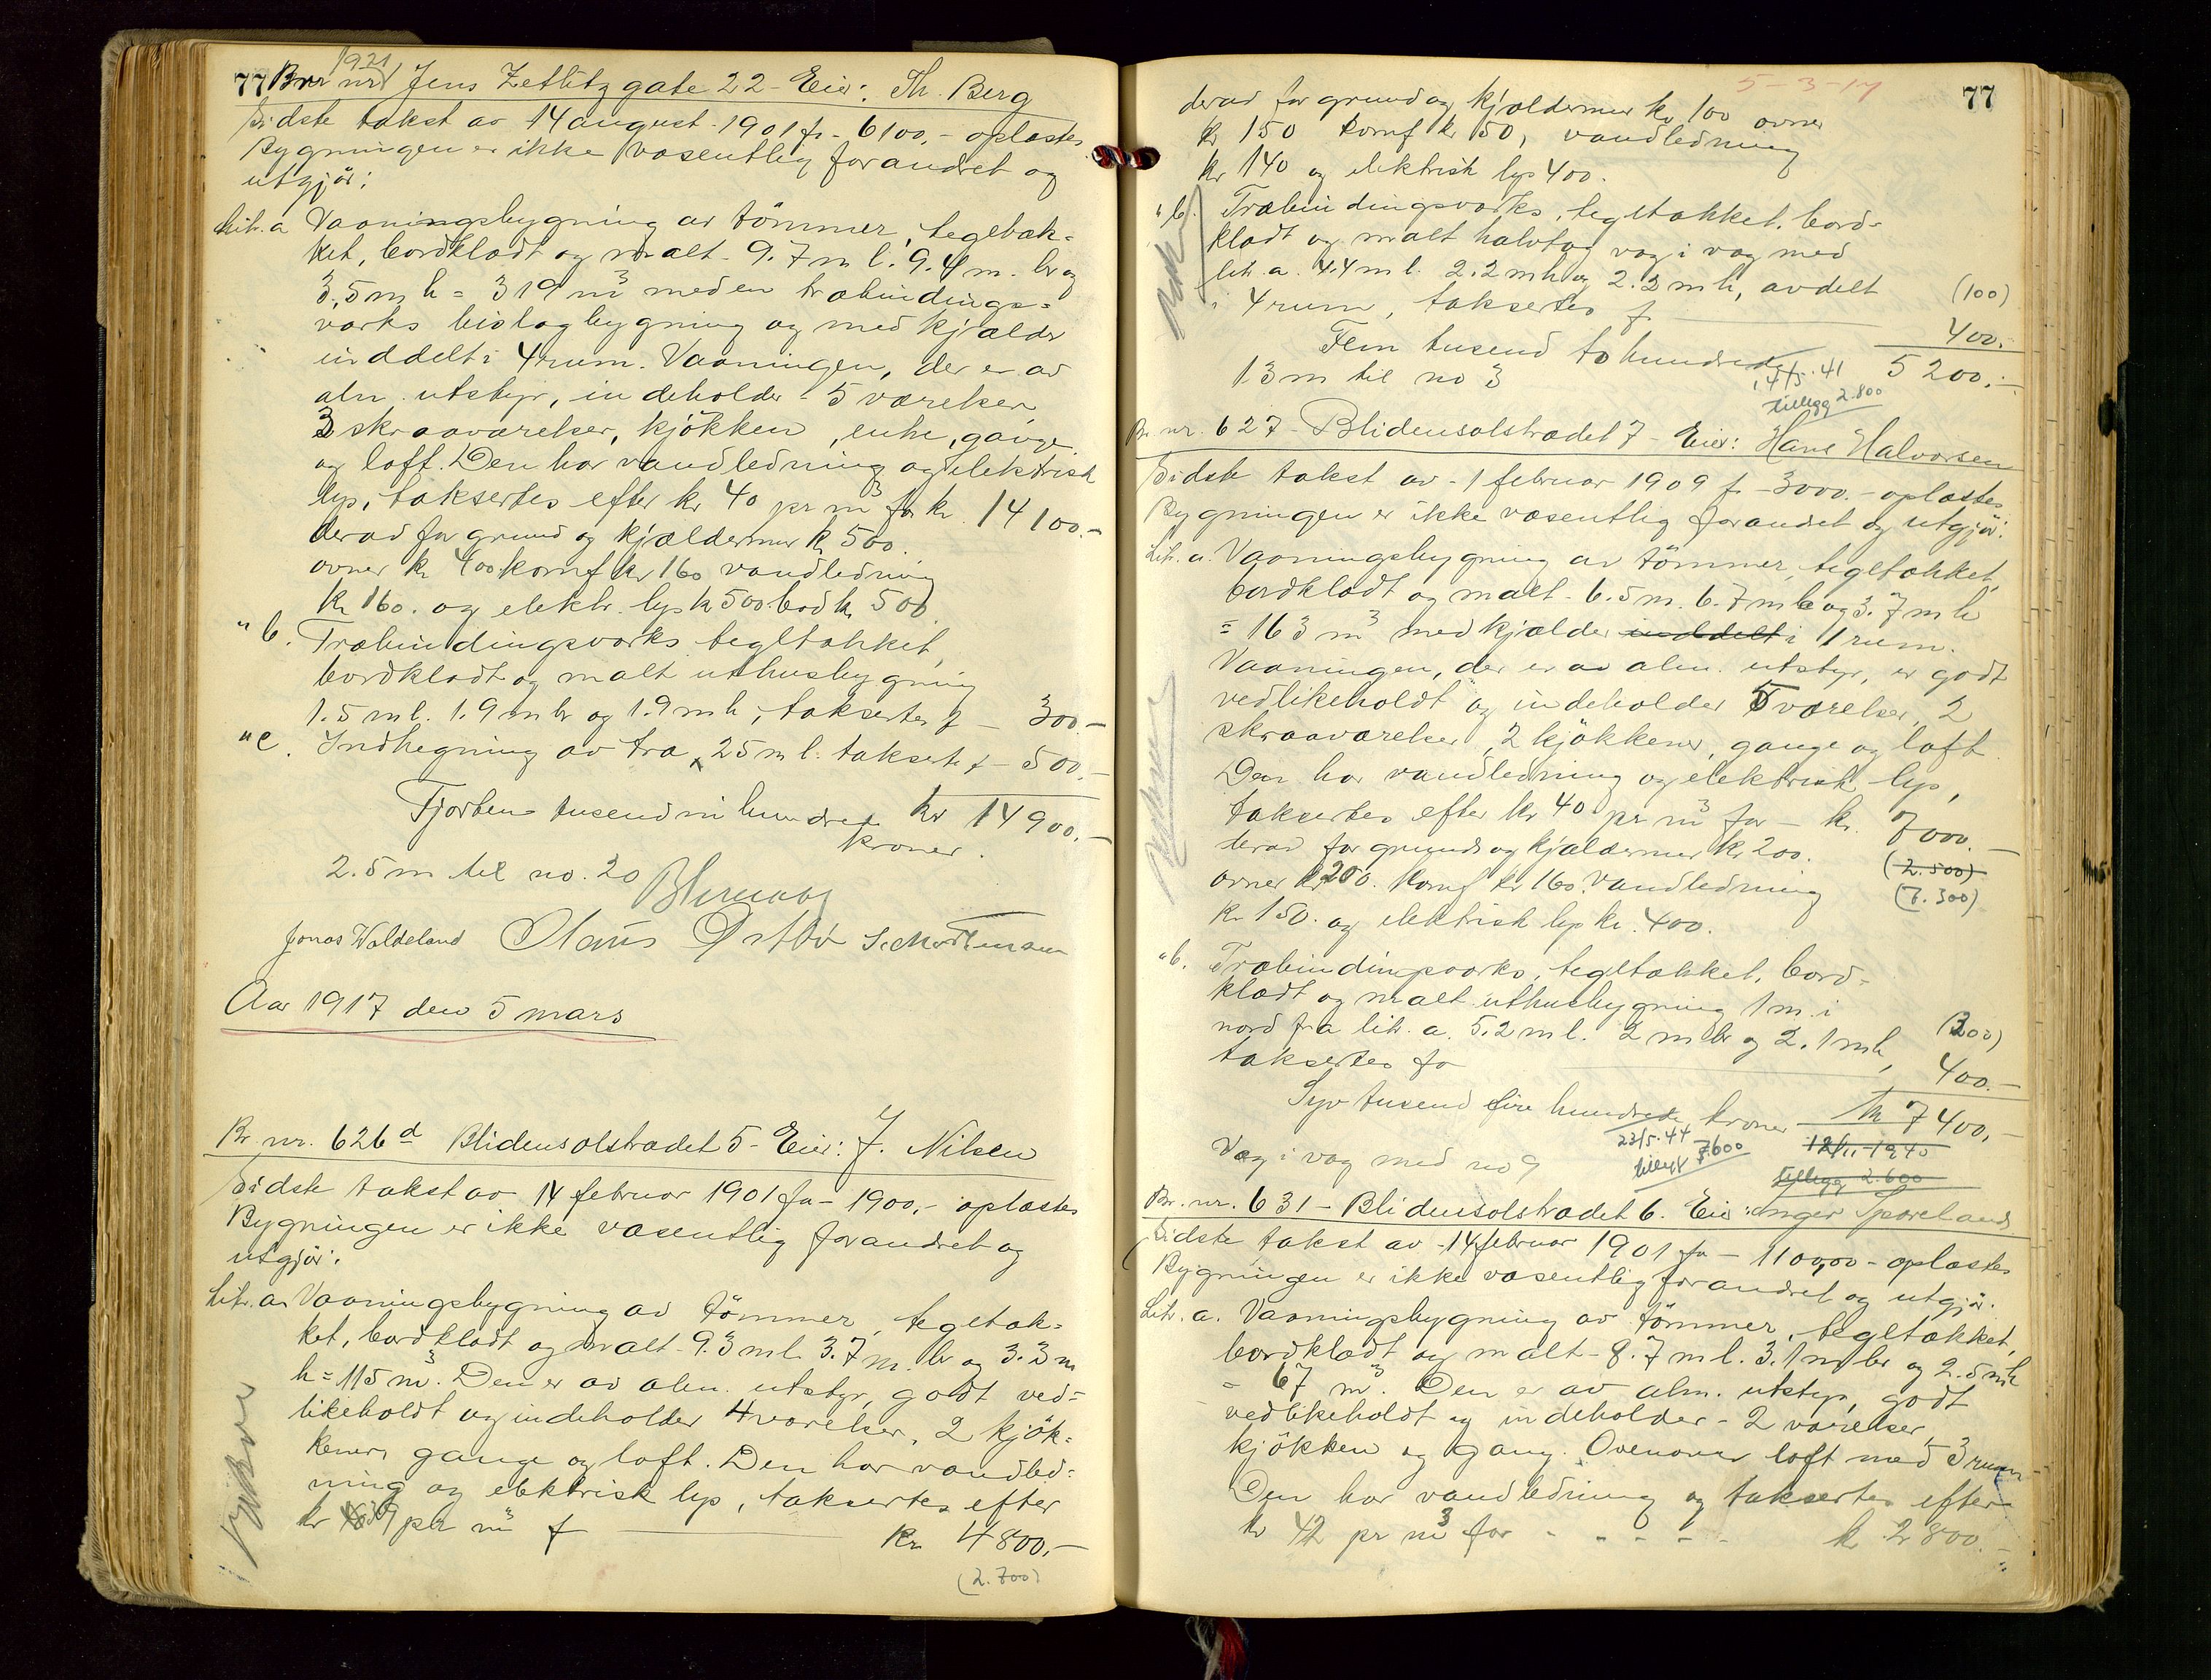 77 Br nr 1921 Jens Zetlitz gate 22 - Eier: Th. Berg
Sidste takst av 14 august 1901 fr - 6100,- oplæstes
Bygningen er ikke væsentlig forandret og
utgjör:
Litr. a Vaaningsbygning av tömmer, tegltæk-
ket, bordklædt og malt - 9.7 m l. 9.4 m. br og
3.5 m h = 319 m3 med en træbindings=
værks bislagbygning og med kjælder
inddelt i 4 rum. Vaaningen, der er av
alm. utstyr, indeholder 5 værelser
3 skraaværelser, kjökken, entre, gange
og loft. Den har vandledning og elektrisk
lys, taksertes efter kr 40 pr m3 for kr. 14100.-
derav for grund og kjældermur kr 500.
ovner kr 400. komf kr 160 vandledning
kr 160. og elektr. lys kr 500 bod kr 500
" b. Træbindingsværks tegltækket,
bordklædt og malt uthusbygning
1.5 m l. 1.9 m br og 1.9 m h, taksertes f - 300.-
" c. Indhegning av træ, 25 m l. taksertes f - 500.-
Fjorten tusend ni hundrede kr 14900.-
kroner.
2.5 m til no. 20
Jonas Waldeland Olaus Østbö
Aar 1917 den 5 mars
Br. nr. 626 d Blidensolstrædet 5 - Eier: J. Nilsen
Sidste takst av 14 februar 1901 for - 1900,- oplæstes
Bygningen er ikke væsentlig forandret og
utgjör:
Litr. a. Vaaningsbygning av tömmer, tegltæk=
ket, bordklædt og malt - 9.3 m l. 3.7 m. br og 3.3 m
h = 115 m3. Den er av alm. utstyr, godt ved=
likeholdt og indeholder 4 værelser, 2 kjök=
kener, gange og loft. Den har vandled=
ning og elektrisk lys, taksertes efter
kr 39 pr m3 f kr 4800.-
(2.700)
5-3-17
77
derav for grund og kjældermur kr 100 ovner
kr 150 komf kr 150, vandledning
kr 140 og elektrisk lys 400.
" b. Træbindingsværks, tegltækket, bord-
klædt og malt halvtag væg i væg med
litr. a. 4.4 m l. 2.2 m br og 2.3 m h, avdelt
i 4 rum, taksertes f. (100)
400.-
Fem tusend to hundrede 5200.-
13 m til no 3
14/5.41
tillegg 2.800
Br. nr. 627 - Blidensolstrædet 7 - Eier: Hans Halvorsen
Sidste takst av - 1 februar 1909 f - 3000.- oplæstes
Bygningen er ikke væsentlig forandret og utgjör:
Litr. a. Vaaningsbygning av tömmer, tegltækket,
bordklædt og malt - 6.5 m. 6.7 m br og 3.7 m h
= 163 m3 med kjælder inddelt i 1 rum.
Vaaningen, der er av alm. utstyr, er godt
vedlikeholdt og indeholder 5 værelser, 2
skraaværelser, 2 kjökkener, gange og loft
Den har vandledning og elektrisk lys,
taksertes efter kr 40 pr m3 for - kr. 7000.-
derav for grund og kjældermur kr 200. (2.500)
ovner kr 200. komf kr 160. vandledning (7.300)
kr 150. og elektrisk lys kr. 400.
" b. Træbindingsværks, tegltækket, bord-
klædt og malt uthusbygning 1 m. i
nord fra litr. a. 5.2 m l. 2 m br og 2.1 m h, (300)
taksertes for 400.-
Syv tusend fire hundrede kroner kr 7400.-
23/5.44 12/11-1940
tillegg 7.600 tillegg 2.600
Væg i væg med no 9
Br. nr. 631 - Blidensolstrædet 6. Eier: Inger Tjoreland
Sidste takst av - 14 februar 1901 for - 1100,00 - oplæstes
Bygningen er ikke væsentlig forandret og utgjör:
Litr. a. Vaaningsbygning av tömmer, tegltækket,
bordklædt og malt - 8.7 m l. 3.1 m br og 2.5 m h
= 67 m3. Den er av alm. utstyr, godt
vedlikeholdt og indeholder - 2 værelser,
kjökken og gang. Ovenover loft med 3 rum
Den har vandledning og taksertes efter
kr 42 pr m3 for - - - - - kr 2800.-